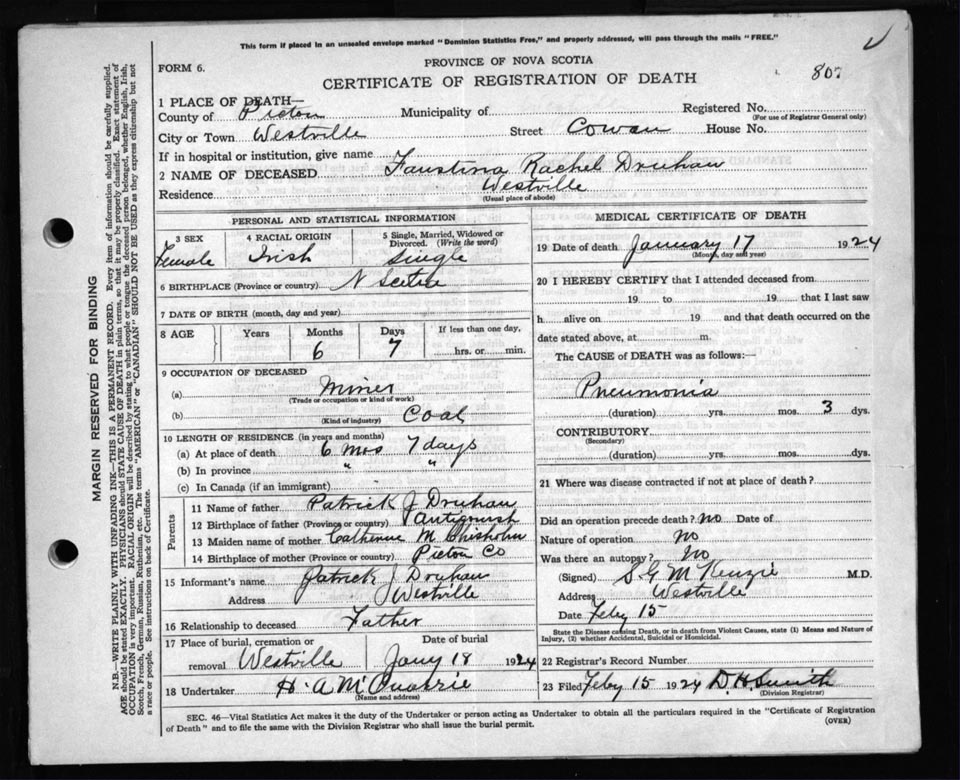 This form if placed in an unsealed envelope marked "Dominion Statistics Free," and properly addressed, will pass through the mails "FREE."
PROVINCE OF NOVA SCOTIA
FORM 6.
CERTIFICATE OF REGISTRATION OF DEATH
807
1 PLACE OF DEATH—
County of Pictou Municipality of Registered No.
(For use of Registrar General only)
City or Town Westville Street Cowan House No.
If in hospital or institution, give name
2 NAME OF DECEASED Faustina Rachel Druhan
Residence Westville
(Usual place of abode)
PERSONAL AND STATISTICAL INFORMATION
3 SEX 4 RACIAL ORIGIN 5 Single, Married, Widowed or Divorced. (Write the word)
Female Irish Single
6 BIRTHPLACE (Province or country) N Scotia
7 DATE OF BIRTH (month, day and year)
8 AGE Years Months Days If less than one day,
6 7 hrs. or min.
9 OCCUPATION OF DECEASED
(a) Miner
(Trade or occupation or kind of work)
(b) Coal
(Kind of industry)
10 LENGTH OF RESIDENCE (in years and months)
(a) At place of death 6 mos 7 days
(b) In province " "
(c) In Canada (if an immigrant)
Parents
11 Name of father Patrick J Druhan
12 Birthplace of father (Province or country) Antigonish
13 Maiden name of mother Catherine M Chisholm
14 Birthplace of mother (Province or country) Pictou Co
15 Informant's name Patrick J Druhan
Address Westville
16 Relationship to deceased Father
17 Place of burial, cremation or Date of burial
removal Westville Jany 18 1924
18 Undertaker H. A McQuarrie
(Name and address)
MEDICAL CERTIFICATE OF DEATH
19 Date of death January 17 1924
(Month, day and year)
20 I HEREBY CERTIFY that I attended deceased from
19 to 19 that I last saw
h alive on 19 and that death occurred on the
date stated above, at m.
The CAUSE of DEATH was as follows:—
Pneumonia
(duration) yrs. mos. 3 dys.
CONTRIBUTORY
(Secondary)
(duration) yrs. mos. dys.
21 Where was disease contracted if not at place of death?
Did an operation precede death? no Date of
Nature of operation no
Was there an autopsy? No
(Signed) S G McKenzie M.D.
Address Westville
Date Feby 15
State the Disease causing Death, or in death from Violent Causes, state (1) Means and Nature of
Injury, (2) whether Accidental, Suicidal or Homicidal.
22 Registrar's Record Number
23 Filed Feby 15 1924 D. H. Smith
(Division Registrar)
SEC. 46—Vital Statistics Act makes it the duty of the Undertaker or person acting as Undertaker to obtain all the particulars required in the "Certificate of Registration
of Death" and to file the same with the Division Registrar who shall issue the burial permit. (OVER)
MARGIN RESERVED FOR BINDING
N.B.—WRITE PLAINLY WITH UNFADING INK—THIS IS A PERMANENT RECORD. Every item of information should be carefully supplied.
AGE should be stated EXACTLY. PHYSICIANS should STATE CAUSE OF DEATH in plain terms, so that it may be properly classified. Exact statement of
OCCUPATION is very important. RACIAL ORIGIN will be described by stating to what people or tongue the deceased person belonged, whether English, Irish,
Scotch, French, German, Russian, Ruthenian, etc. The terms "AMERICAN" or "CANADIAN" SHOULD NOT BE USED as they express citizenship but not
a race or people. See instructions on back of Certificate.